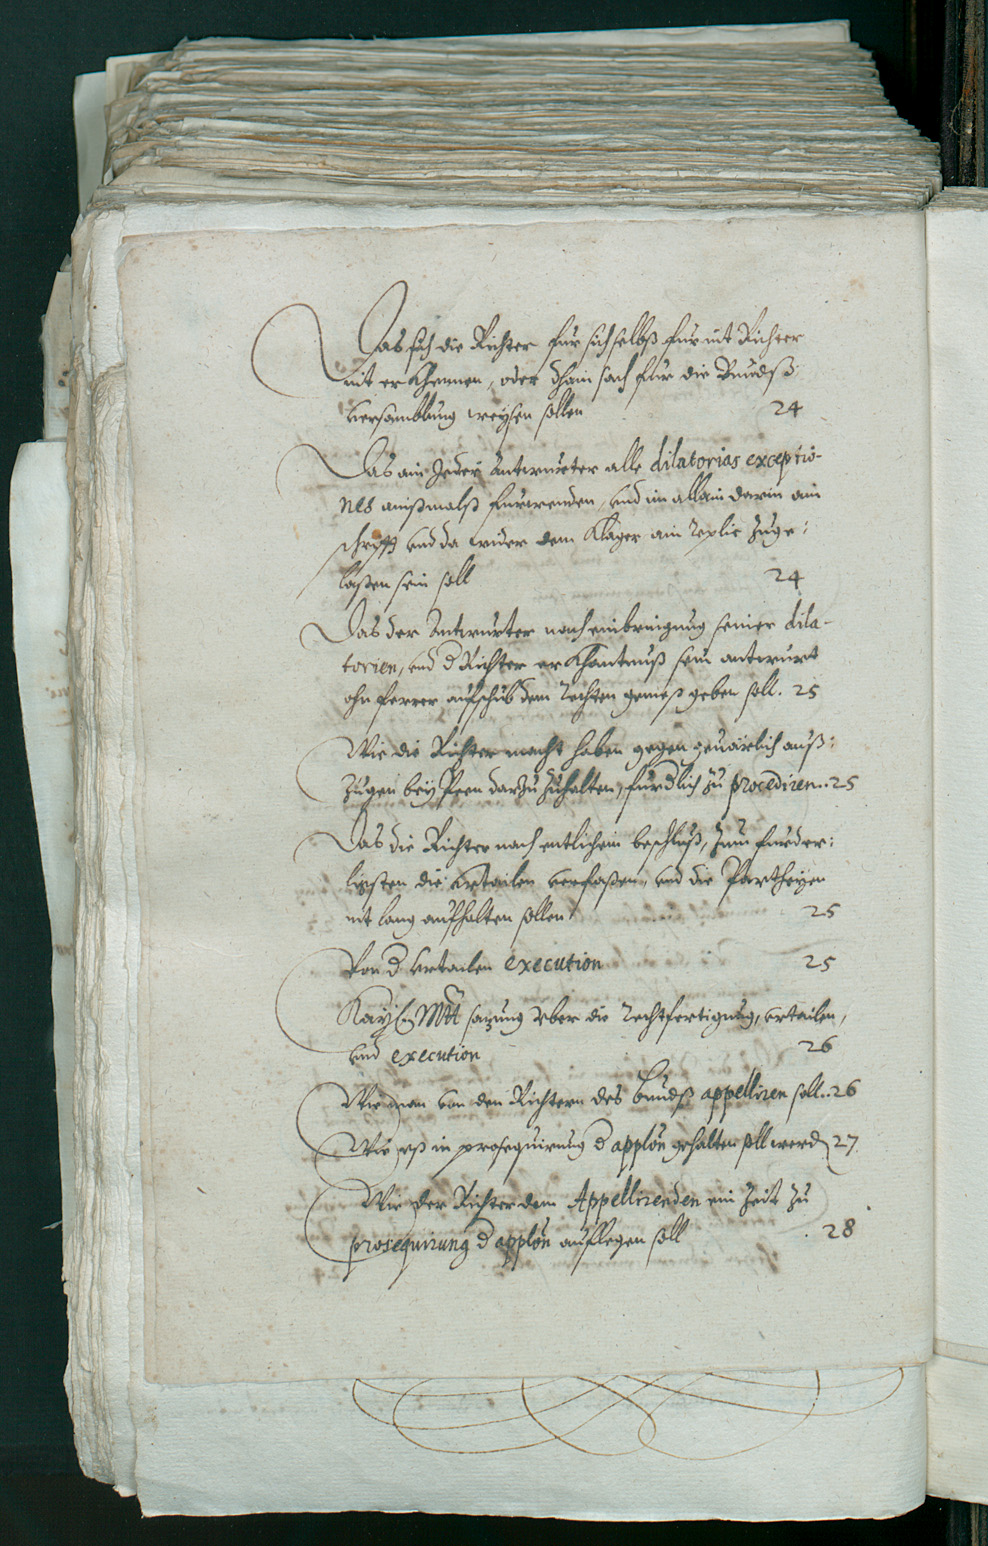 Das sich die Richter fur sich selbß fur nit Richter
nit erkhennen, oder khain sach fur die Bundß
versamblung weysen sollen 24
Das ain Jeder Antwurter alle dilatorias exceptio-
nes ainßmalß furwenden, und im allain darin ain
schrifft und da wider dem Kläger ain replic zuge:
lassen sein soll 24
Das der Antwurter nach einbringung seiner dila-
torien, und d Richter erkhantnuß sein antwurt
ohn ferrer aufschub dem rechten gemeß geben soll. 25
Wie die Richter macht haben gegen geuärlich auß:
zugen bey Peen darzu zuhalten, furdlich zu procediren.. 25
Das die Richter nach entlichem beschluß, zum furder:
lichsten die urtailen verfassen, und die Partheyen
nit lang aufhalten sollen 25
Von d urtailen execution 25
Kay: Mtt satzung uber die rechtfertigung, urtailen,
und execution 26
Wie man von den Richtern des Bundß appelliren soll.. 26
Wie eß in prosequirung d applon gehalten soll werd 27
Wie der Richter dem Appellirenden ein Zeit zu
prosequirung d applon auflegen soll 28